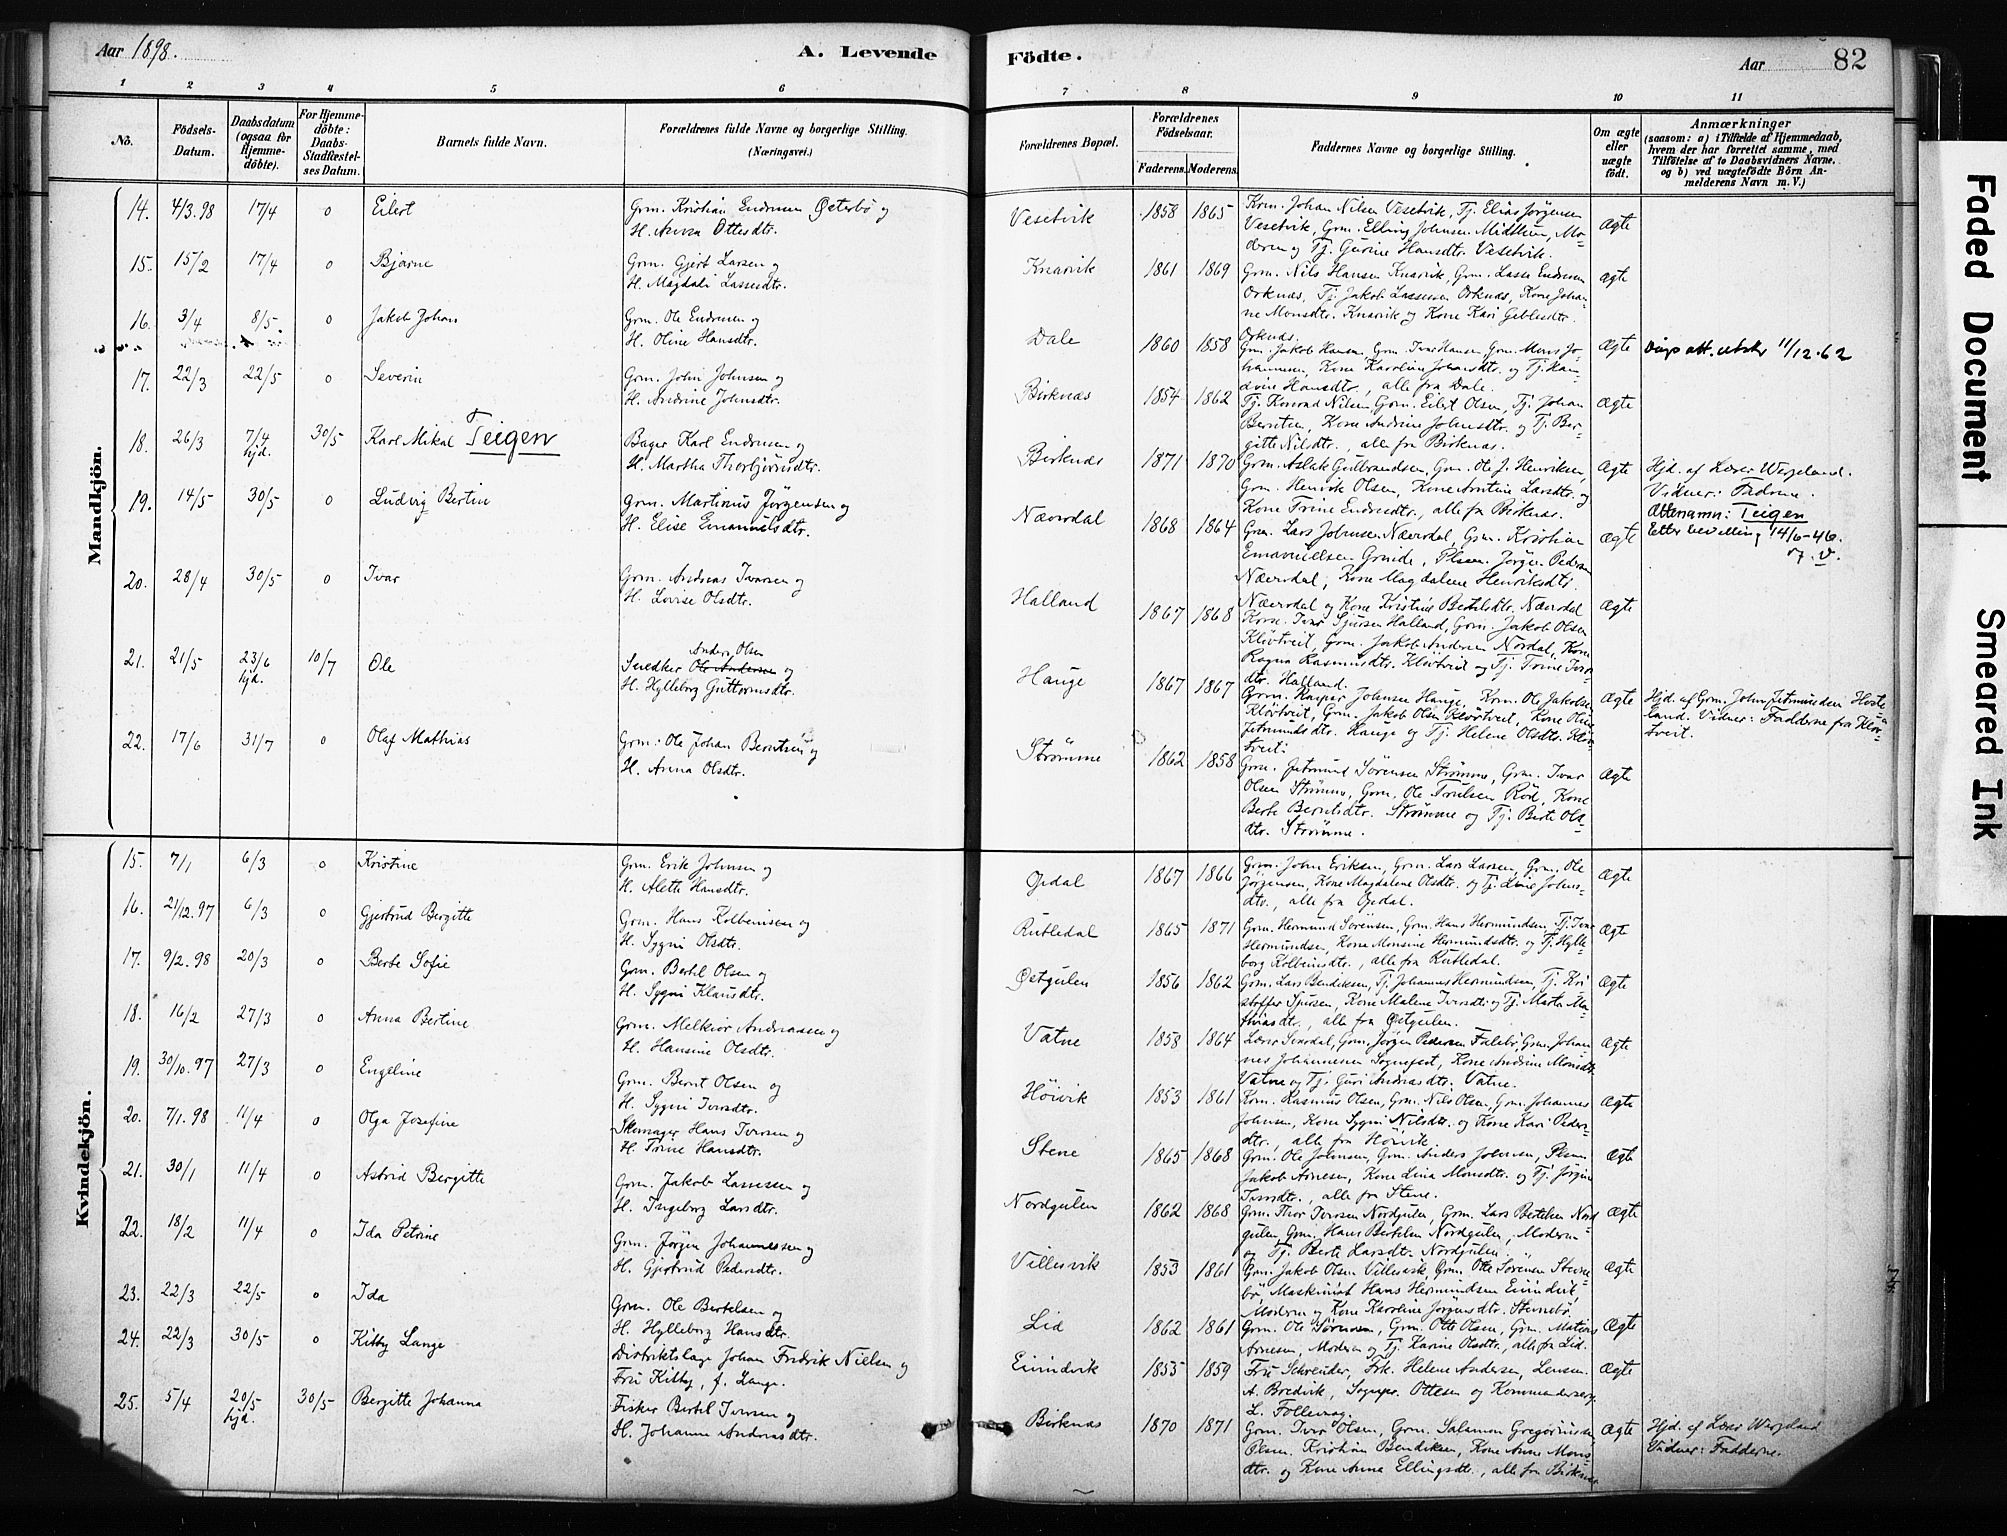 Aar 1898.
A. Levende
Födte.
Aar
82
1 2 3 4 5 6 7 8 9 10 11
No.
Födsels-Datum.
Daabsdatum (ogsaa for Hjemme-döbte).
For Hjemme-döbte: Daabs-Stadfæstel-ses Datum.
Barnets fulde Navn.
Forældrenes fulde Navne og borgerlige Stilling. (Næringsvei.)
Forældrenes Bopæl.
Forældrenes Födselsaar.
Faderens. Moderens.
Faddernes Navne og borgerlige Stilling.
Om ægte eller uægte födt.
Anmærkninger
(saasom: a) i Tilfælde af Hjemmedaab, hvem der har forrettet samme, med Tilföielse af to Daabsvidners Navne. og b) ved uægtefödte Börn An-melderens Navn m. V.)
Mandkjön.
14. 4/3.98 17/4 0 Eilert Grm. Kristian Endresen Østerbø og
H. Anna Ottesdtr.
Vesetvik 1858 1865 Krm. Johan Nilsen Vesetvik, Tj. Elias Jørgensen
Vesetvik, Grm. Elling Johnsen Midttun, Mo-
deren og Tj. Gurine Hansdtr. Vesetvik.
Ægte
15. 15/2 17/4 0 Bjarne Grm. Gjert Larsen og
H. Magdali Lassesdtr.
Knarvik 1861 1869 Grm. Nils Hansen Knarvik, Grm. Lasse Endresen
Orknæs, Tj. Jakob Lassesen Orknæs, Kone Johan-
ne Monsdtr. Knarvik og Kone Kari Geblesdtr.
Orknæs.
Ægte
16. 3/4 8/5. 0 Jakob Johan Grm. Ole Endresen og
H. Oline Hansdtr.
Dale 1860 1858 Grm. Jakob Hansen, Grm. Ivar Hansen, Grm. Mons Jo-
hannesen, Kone Karoline Johansdtr. og Tj. Han-
dine Hansdtr., alle fra Dale.
Ægte Dåps att. utskr 11/12.62
17. 22/3 22/5 0 Severin Grm. John Johnsen og
H. Andrine Johnsdtr.
Birknæs 1854 1862 Tj. Konrad Nilsen, Grm. Eilert Olsen, Tj. Johan
Berntsen, Kone Andrine Johnsdtr. og Tj. Ber-
gitte Nilsdtr., alle fra Birknæs.
Ægte
18. 26/3 7/4 hjd. 30/5 Karl Mikal Teigen Bager Karl Endresen og
H. Martha Thorbjørnsdtr.
Birknæs 1871 1870 Grm. Aslak Gulbrandsen, Grm. Ole J. Henriksen,
Grm. Henrik Olsen, Kone Anstine Larsdtr. og
Kone Trine Endresdtr., alle fra Birknæs.
Ægte Hjd. af Lærer Wergeland.
Vidner: Faderne.
Ættenamn: Teigen
Etter bevilling 14/6-46.
19. 14/5 30/5 0 Ludvig Bertin Grm. Martinus Jørgensen og
H. Elise Emanuelsdtr.
Næverdal 1868 1864 Grm. Lars Johnsen Næverdal, Grm. Kristian
Emanuelsen Grinde, Plsm. Jørgen Pedersen
Næverdal, Kone Magdalene Henriksdtr.
Næverdal og Kone Kristine Bertelsdtr. Næverdal
Ægte
20. 28/4 30/5 0 Ivar Grm. Andreas Ivarsen og
H. Lovise Olsdtr.
Halland 1867 1868 Korse. Ivar Sjursen Halland, Grm. Jakob Olsen
Kløvtveit, Grm. Jakob Andersen Nordal, Kone
Ragna Rasmusdtr. Kløvtveit og Tj. Trine Ivers-
dtr. Halland.
Ægte
21. 21/5 23/6 hjd. 10/7 Ole Snedker Anders Olsen og
H. Hylleborg Guttormsdtr.
Hauge 1867 1867 Grm. Kaspar Johnsen Hauge, Krm. Ole Jakobsen
Kløvtveit, Grm. Jakob Olsen Kløvtveit, Kone Oline
Jetmundsdtr. Hauge og Tj. Helene Olsdtr. Kløv-
tveit.
Ægte Hjd. af Grm. John Jetmundsen Hoste-
land. Vidner: Fadderne fra Kløv-
tveit.
22. 17/6 31/7 0 Olaf Mathias Grm. Ole Johan Berntsen og
H. Anna Olsdtr.
Strømme 1862 1858 Grm. Jetmund Sørensen Strømme, Grm. Ivar
Olsen Strømme, Grm. Ole Trulsen Rød, Kone
Berte Berntsdtr. Strømme og Tj. Berte Ols-
dtr. Strømme.
Ægte
Kvindekjön.
15. 7/1 6/3 0 Kristine Grm. Erik Johnsen og
H. Alette Hansdtr.
Opdal 1867 1866 Grm. John Eriksen, Grm. Lars Larsen, Grm. Ole
Jørgensen, Kone Magdalene Olsdtr. og Tj. Line Johns-
dtr., alle fra Opdal.
Ægte
16. 21/12.97 6/3 0 Gjertrud Bergitte Grm. Hans Kolbeinsen og
H. Sygni Olsdtr.
Rutledal 1865 1871 Grm. Hermund Sørensen, Grm. Hans Hermundsen, Tj. Ivar
Hermundsen, Kone Monsine Hermundsdtr. og Tj. Hylle-
borg Kolbeinsdtr., alle fra Rutledal.
Ægte
17. 9/2.98 20/3 0 Berte Sofie Grm. Bertel Olsen og
H. Sygni Klausdtr.
Østgulen 1856 1862 Grm. Lars Bendiksen, Tj. Johannes Hermundsen, Tj. Kri
stoffer Sjursen, Kone Malene Iversdtr. og Tj. Marta Ma-
thiasdtr., alle fra Østgulen.
Ægte
18. 16/2 27/3 0 Anna Bertine Grm. Melkior Andreassen og
H. Hansine Olsdtr.
Vatne 1858 1864 Lærer Smrdal, Grm. Jørgen Pedersen Falebø, Grm. Johan
nes Johannesen Sognefest, Kone Andrine Monsdtr.
Vatne og Tj. Guri Andreasdtr. Vatne.
Ægte
19. 30/10.97 27/3 0 Engeline Grm. Bernt Olsen og
H. Sygni Iversdtr.
Høivik 1853 1861 Krm. Rasmus Olsen, Grm. Nils Olsen, Grm. Johannes
Johnsen, Kone Sygni Nilsdtr. og Kone Kari Peders-
dtr., alle fra Høivik.
Ægte
20. 7/1.98 11/4 0 Olga Josefine Skomager Hans Iversen og
H. Trine Hansdtr.
Stene 1865 1868 Grm. Ole Johnsen, Grm. Anders Johnsen, Plsm.
Jakob Arnesen, Kone Lina Monsdtr. og Tj. Jørgine
Iversdtr., alle fra Stene.
Ægte
21. 30/1 11/4 0 Astrid Bergitte Grm. Jakob Lassesen og
H. Ingeborg Larsdtr.
Nordgulen 1862 1868 Grm. Thor Iversen Nordgulen, Grm. Lars Bertelsen Nord
gulen, Grm. Hans Bertelsen Nordgulen, Moderen
og Tj. Berte Larsdtr. Nordgulen.
Ægte
22. 18/2 11/4 0 Ida Petrine Grm. Jørgen Johannessen og
H. Gjertrud Pedersdtr.
Villesvik 1853 1861 Grm. Jakob Olsen Villesvik, Grm. Otte Sørensen Steine-
bø, Maskinist Hans Hermundsen Eivindvik,
Moderen og Kone Karoline Jørgensdtr. Steinebø.
Ægte
23. 22/3 22/5 0 Ida Grm. Ole Bertelsen og
H. Hylleborg Hansdtr.
Lid 1862 1861 Grm. Ole Sørensen, Grm. Otte Olsen, Grm. Matias
Arnesen, Moderen og Tj. Karine Olsdtr., alle fra Lid.
Ægte
24. 22/3 30/5 0 Kitty Lange Distriktslæge Johan Fredrik Nielsen og
Fru Kitty, f. Lange.
Eivindvik 1855 1859 Fru Schreuder, Frk. Helene Andersen, Lensm.
A. Bredvik, Sognepr. Ottesen og Kommanderserg.
L. Follevaag.
Ægte
25. 5/4 20/5 hjd. 30/5 Bergitte Johanna Fisker Bertel Iversen og
H. Johanne Andreasdtr.
Birknæs 1870 1871 Grm. Iver Olsen, Grm. Salamon Gregoriussen,
Plsm. Kristian Bendiksen, Kone Anne Mons-
dtr. og Kone Anna Ellingsdtr., alle fra Birknæs
Ægte Hjd. af Lærer Wergeland
Vidner: Fadderne.
Faded Document
Smeared Ink